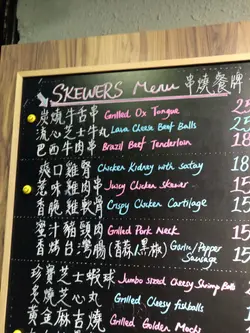 SKEWERS Menu 串燒餐牌
炭燒牛舌串 Grilled Ox Tongue 22
流心芝士牛丸 Lava Cheese Beef Balls 25
巴西牛肉串 Brazil Beef Tenderloin
爽口雞腎 Chicken Kidney with satay 18
惹味雞串 Juicy Chicken skewer 15
香脆雞軟骨 Crispy Chicken Cartilage 15
蜜汁豬頸肉 Grilled Pork Neck 1
香烤台灣腸(香蒜/黑椒) Garlic/Pepper Sausage 1
珍寶芝士蝦球 Jumbo sized Cheesy Shrimp Balls
炙燒芝心丸 Grilled Cheesy fishballs
黃金麻吉燒 Grilled Golden Mochi